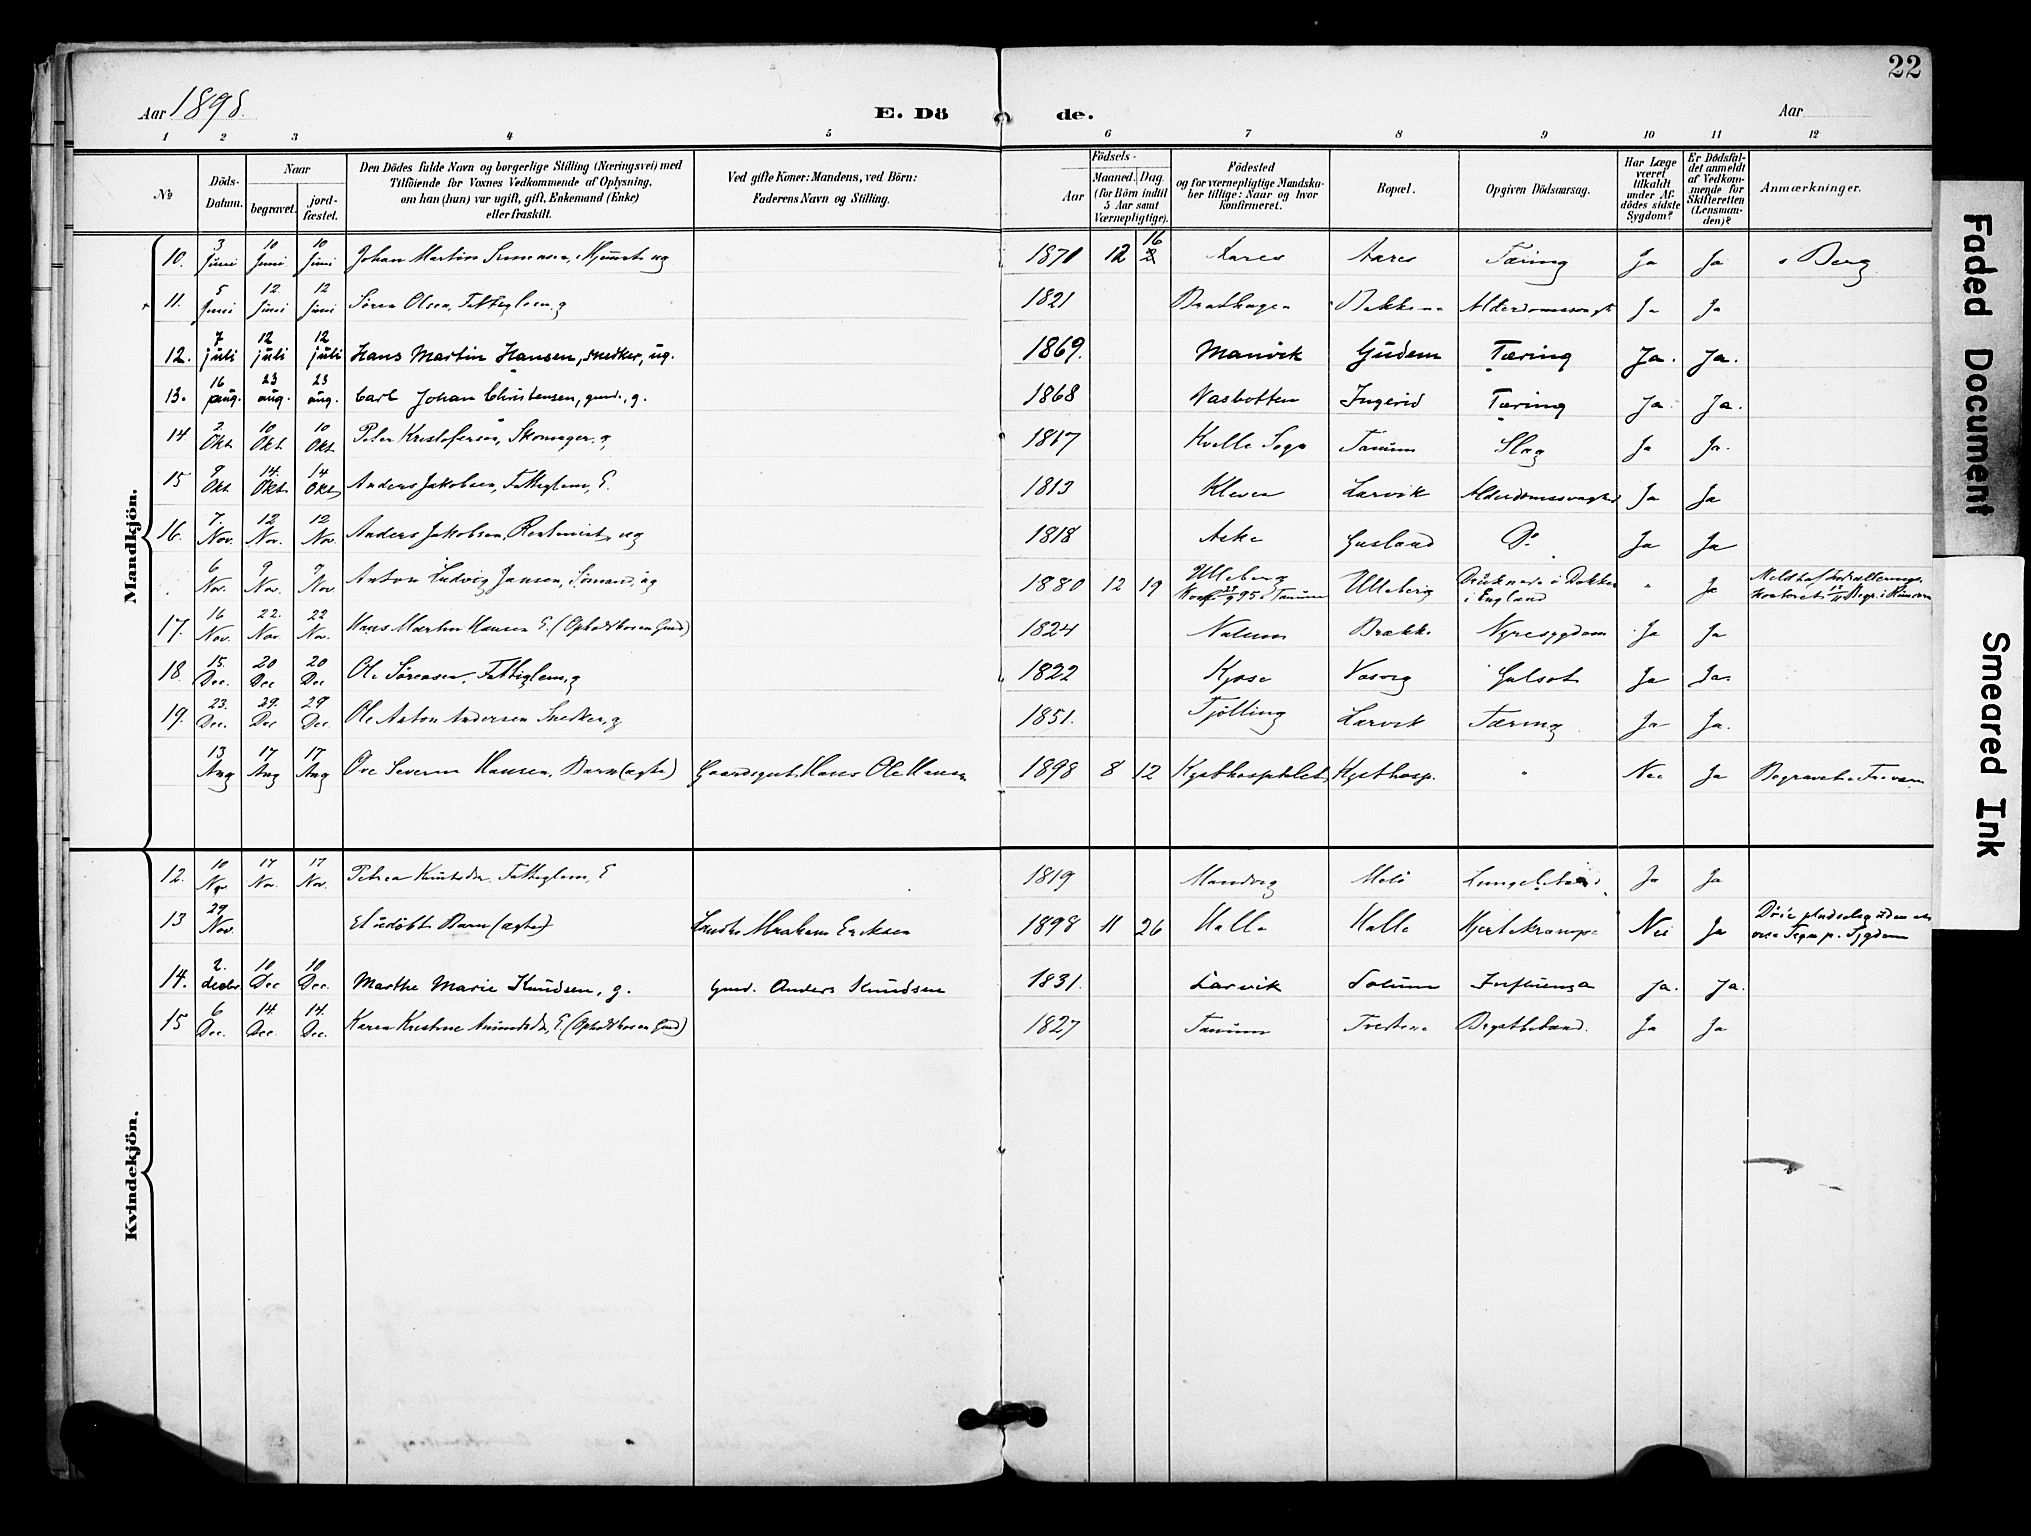 22
Aar 1898.
E. Dö de.
Aar
1 2 3 4 5 6 7 8 9 10 11 12
No
Döds-Datum.
Naar
begravet.
jord-fæstet.
Den Dödes fulde Navn og borgerlige Stilling (Næringsvei) med
Tilföiende for Voxnes Vedkommende af Oplysning,
om han (hun) var ugift, gift, Enkemand (Enke)
eller fraskilt.
Ved gifte Koner: Mandens, ved Börn:
Faderens Navn og Stilling.
Födsels-
Aar
Maaned. Dag.
(for Börn indtil
5 Aar samt
Værnepligtige).
Födested
og for værnepligtige Mandska-
ber tillige: Naar og hvor
konfirmeret.
Bopæl.
Opgiven Dödsaarsag.
Har Læge
været
tilkaldt
under Af-
dödes sidste
Sygdom?
Er Dödsfal-
det anmeldt
af Vedkom-
mende for
Skifteretten
(Lensman-
den)?
Anmærkninger.
Mandkjön.
10. 3 Juni 10 Juni 10 Juni Johan Martin 1871 12 16 Aares Aares Tæring Ja Ja Berg
11. 5 Juni 12. Juni 12 Juni Sören Olsen, Fattiglem, g 1821 Bakkene Alderdomssvagh Ja Ja
12. 7 juli 12 juli 12 juli Hans Martin Hansen, snedker, ug. 1869. Manvik Gudem Tæring Ja. Ja.
13. 16 aug. 23 aug. 23 aug. Carl Johan Christensen, gmd., g. 1868 Vasbotten Ingerid Tæring Ja. Ja.
14. 2. Okt 10 Okt 10 Okt Peter Kristofersen, Skomager, g, 1817 Kvelle Sogn Tanum Slag Ja Ja.
15 9 Okt 14. Okt 14 Okt Anders Jakobsen, Fattiglem, E. 1813 Kleven Larvik Alderdomssvaghed Ja Ja
16. 7. Nov. 12 Nov. 12 Nov. Anders Jakobsen, ug 1818 Aske Gusland Do Ja Ja
6 Nov. 9 Nov. 9 Nov Anton Ludvig Jansen, Sömand, ug 1880 12 19 Ulleberg Konf. 29/9 95 i Tanum Ulleberg Druknede i Dokken i England " Ja
17. 16 Nov. 22. Nov. 22 Nov. Hans Martin Hansen E. (Opholdhos en Gmd) 1824 Nalum Brække Nyresygdom Ja Ja
18. 15. Dec. 20 Dec 20 Dec Ole Sörensen, Fattiglem, g 1822 Kjose Vasvig Gulsot Ja Ja.
19. 23. Dec. 29. Dec 29 Dec Ole Anton Andersen Snedker, g 1851. Tjölling Larvik Tæring Ja Ja.
13 Aug 17 Aug 17 Aug Ove Severin Hansen, Barn (ægte) Gaardsgut Hans Ole Hansen 1898 8 12 Kysthospitalet, Kysthosp. " Nei Ja Begravet i
Kvindekjön.
12. 10 Nov 17 Nov. 17 Nov. Petrea Fattiglem, E 1819 Mandvig Melö Ja Ja
13 29 Nov. Et udöbt Barn (ægte) Abraham Eriksen 1898 11 26 Halle Halle Hjertekrampe Nei Ja
14. 2. decbr 10 Dec 10 Dec. Marthe Marie Knudsen, g. Gmd. Anders Knudsen 1831. Larvik Solum Influensa Ja. Ja.
15 6 Dec. 14 Dec. 14. Dec. Karen Kristine E (Opholdhos en Gmd) 1827 Tanum Ja Ja
Faded Document
Smeared Ink